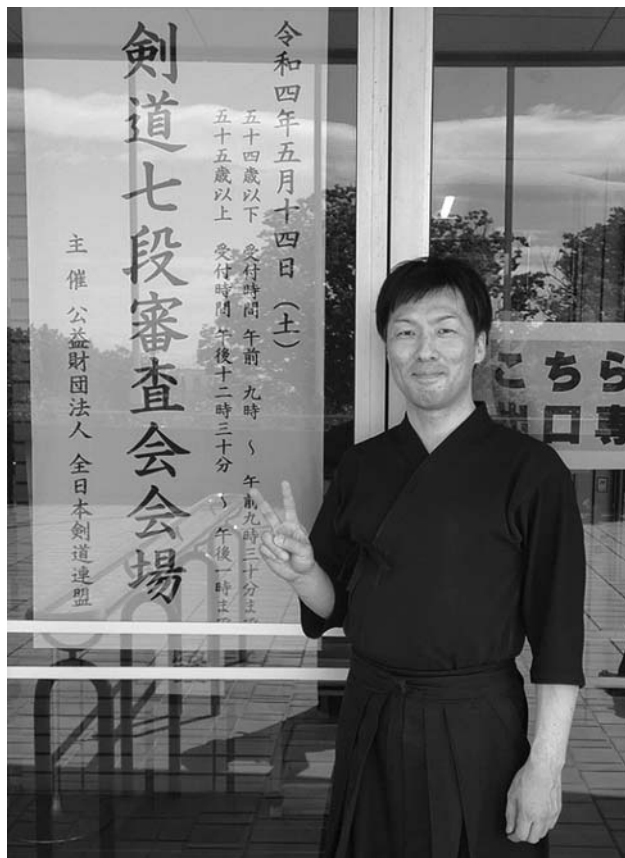 令和四年五月十四日（土）
五十四歳以下 受付時間 午前 九時 ～ 午前九時三十分まで
五十五歳以上 受付時間 午後十二時三十分 ～ 午後一時まで
剣道七段審査会会場
主催 公益財団法人 全日本剣道連盟
こちら
出口専